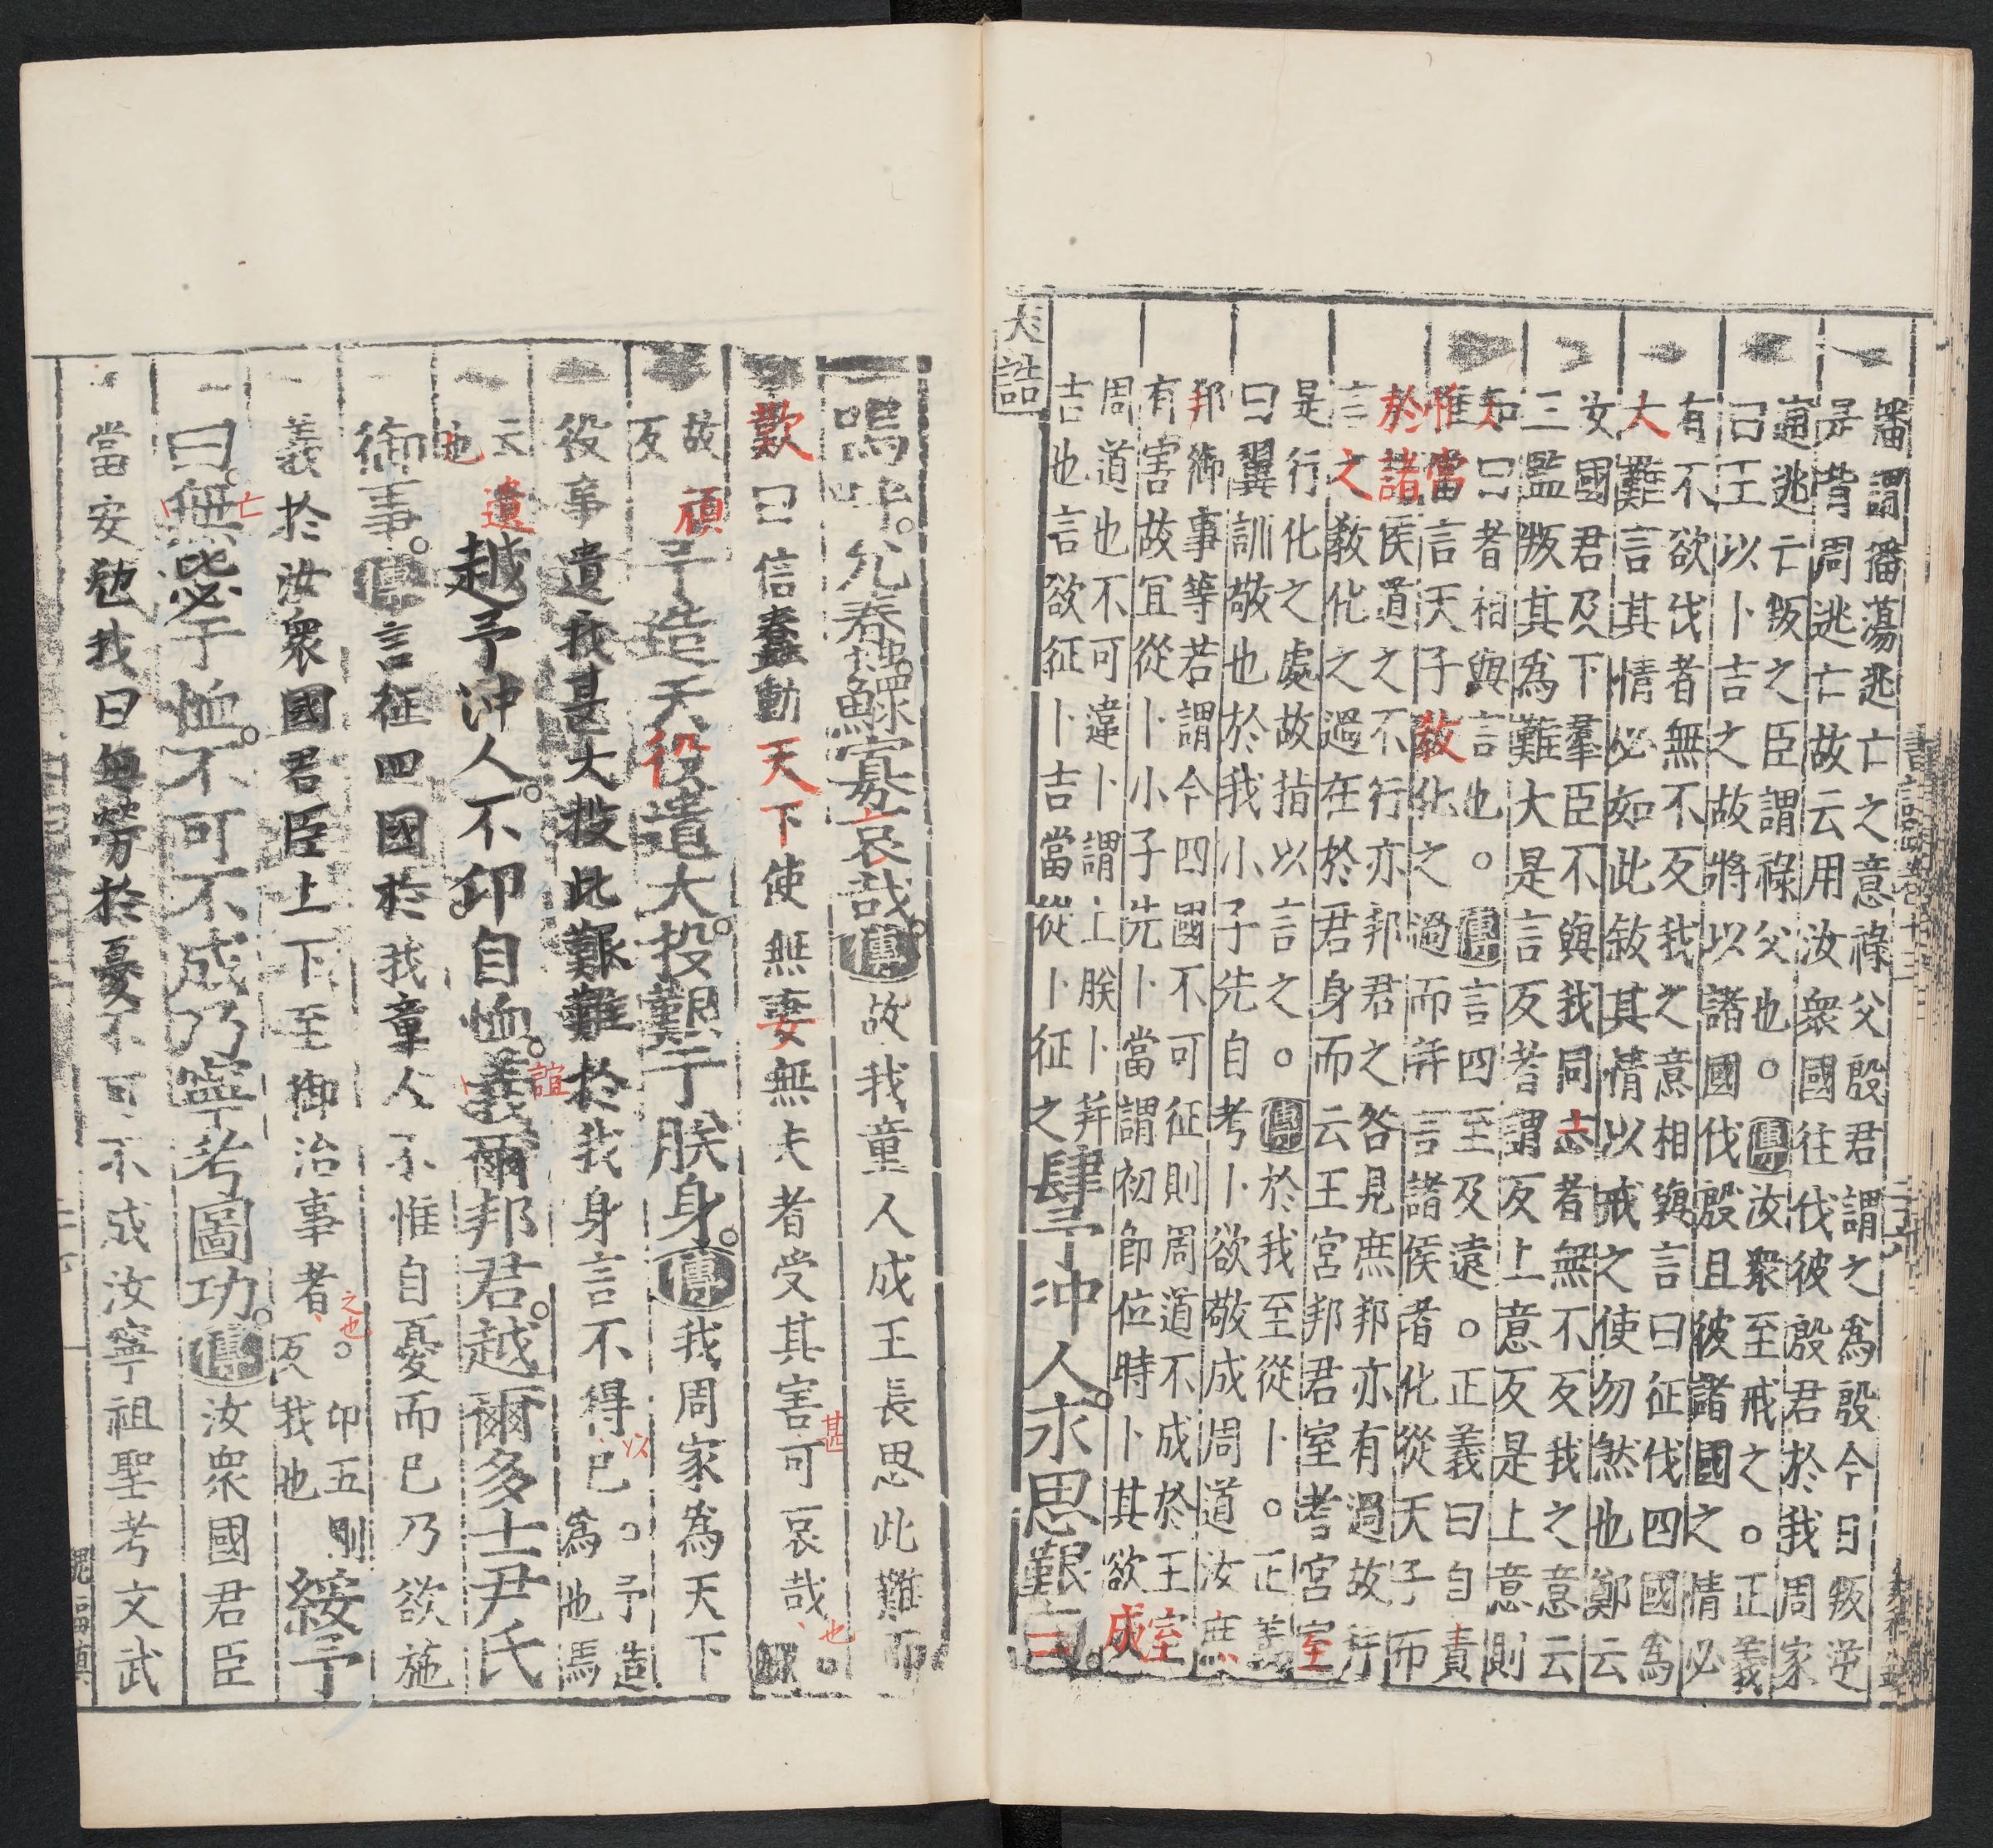 播謂播蕩逃亡之意祿父殷君謂之為殷今日叛逆
是背周逃亡故云用汝衆國往伐彼殷君於我周家
逋逃亡叛之臣謂祿父也。傳汝衆至戒之。正義
曰王以卜吉之故將以諸國伐殷且彼諸國之情必
有不欲伐者無不反我之意相與言曰征伐四國為
大難言其情必如此敘其情以戒之使勿然也鄭云
汝國君及下羣臣不與我同志者無不反我之意云
三監叛其為難大是言反者謂反上意反是上意則
知曰者相與言也。傳言四至及遠。正義曰自責
惟當言天子教化之過而并言諸侯者化從天子而
於諸侯道之不行亦邦君之咎見庶邦亦有過故行
言之教化之過在於君身而云王宮邦君室考宮室
是行化之處故指以言之。傳於我至從卜。正義
曰翼訓敬也於我小子先自考卜欲敬成周道汝庶
邦御事等若謂今四國不可征則周道不成於王室
有害故宜從卜小子先卜當謂初即位時卜其欲成
周道也不可違卜謂上朕卜并
吉也言欲征卜吉當從卜征之
肆予沖人永思艱曰。
大誥
嗚呼。允蠢。鰥寡哀哉。傳故我童人成王長思此難而
歎曰信蠢動天下使無妻無夫者受其害可哀哉、
甚
也。
鰥
故頑
反
予造天役遺大。投艱于朕身。傳我周家為天下
役事遺我甚大投此艱難於我身言不得已。予造
以
為也馬
云遺
也
越予沖人。不卬自恤。義爾邦君。越爾多士尹氏
誼
御事。傳言征四國於我童人不惟自憂而已乃欲施
義於汝衆國君臣上下至御治事者、
之也。
卬五剛
反我也
綏予
曰。無毖于恤。不可不成乃寧考圖功。傳汝衆國君臣
亡
當安勉我曰無勞於憂不可不成汝寧祖聖考文武